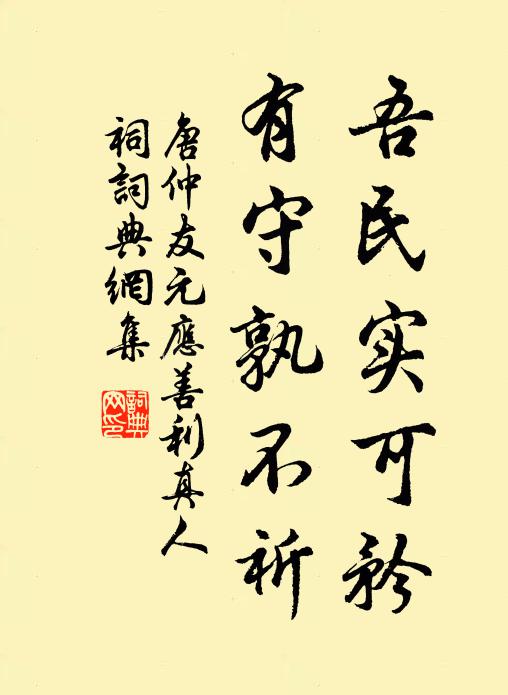 吾民实可矜
有守孰不祈
唐仲友元應善利真人
祠詞典網集
詞典
网印